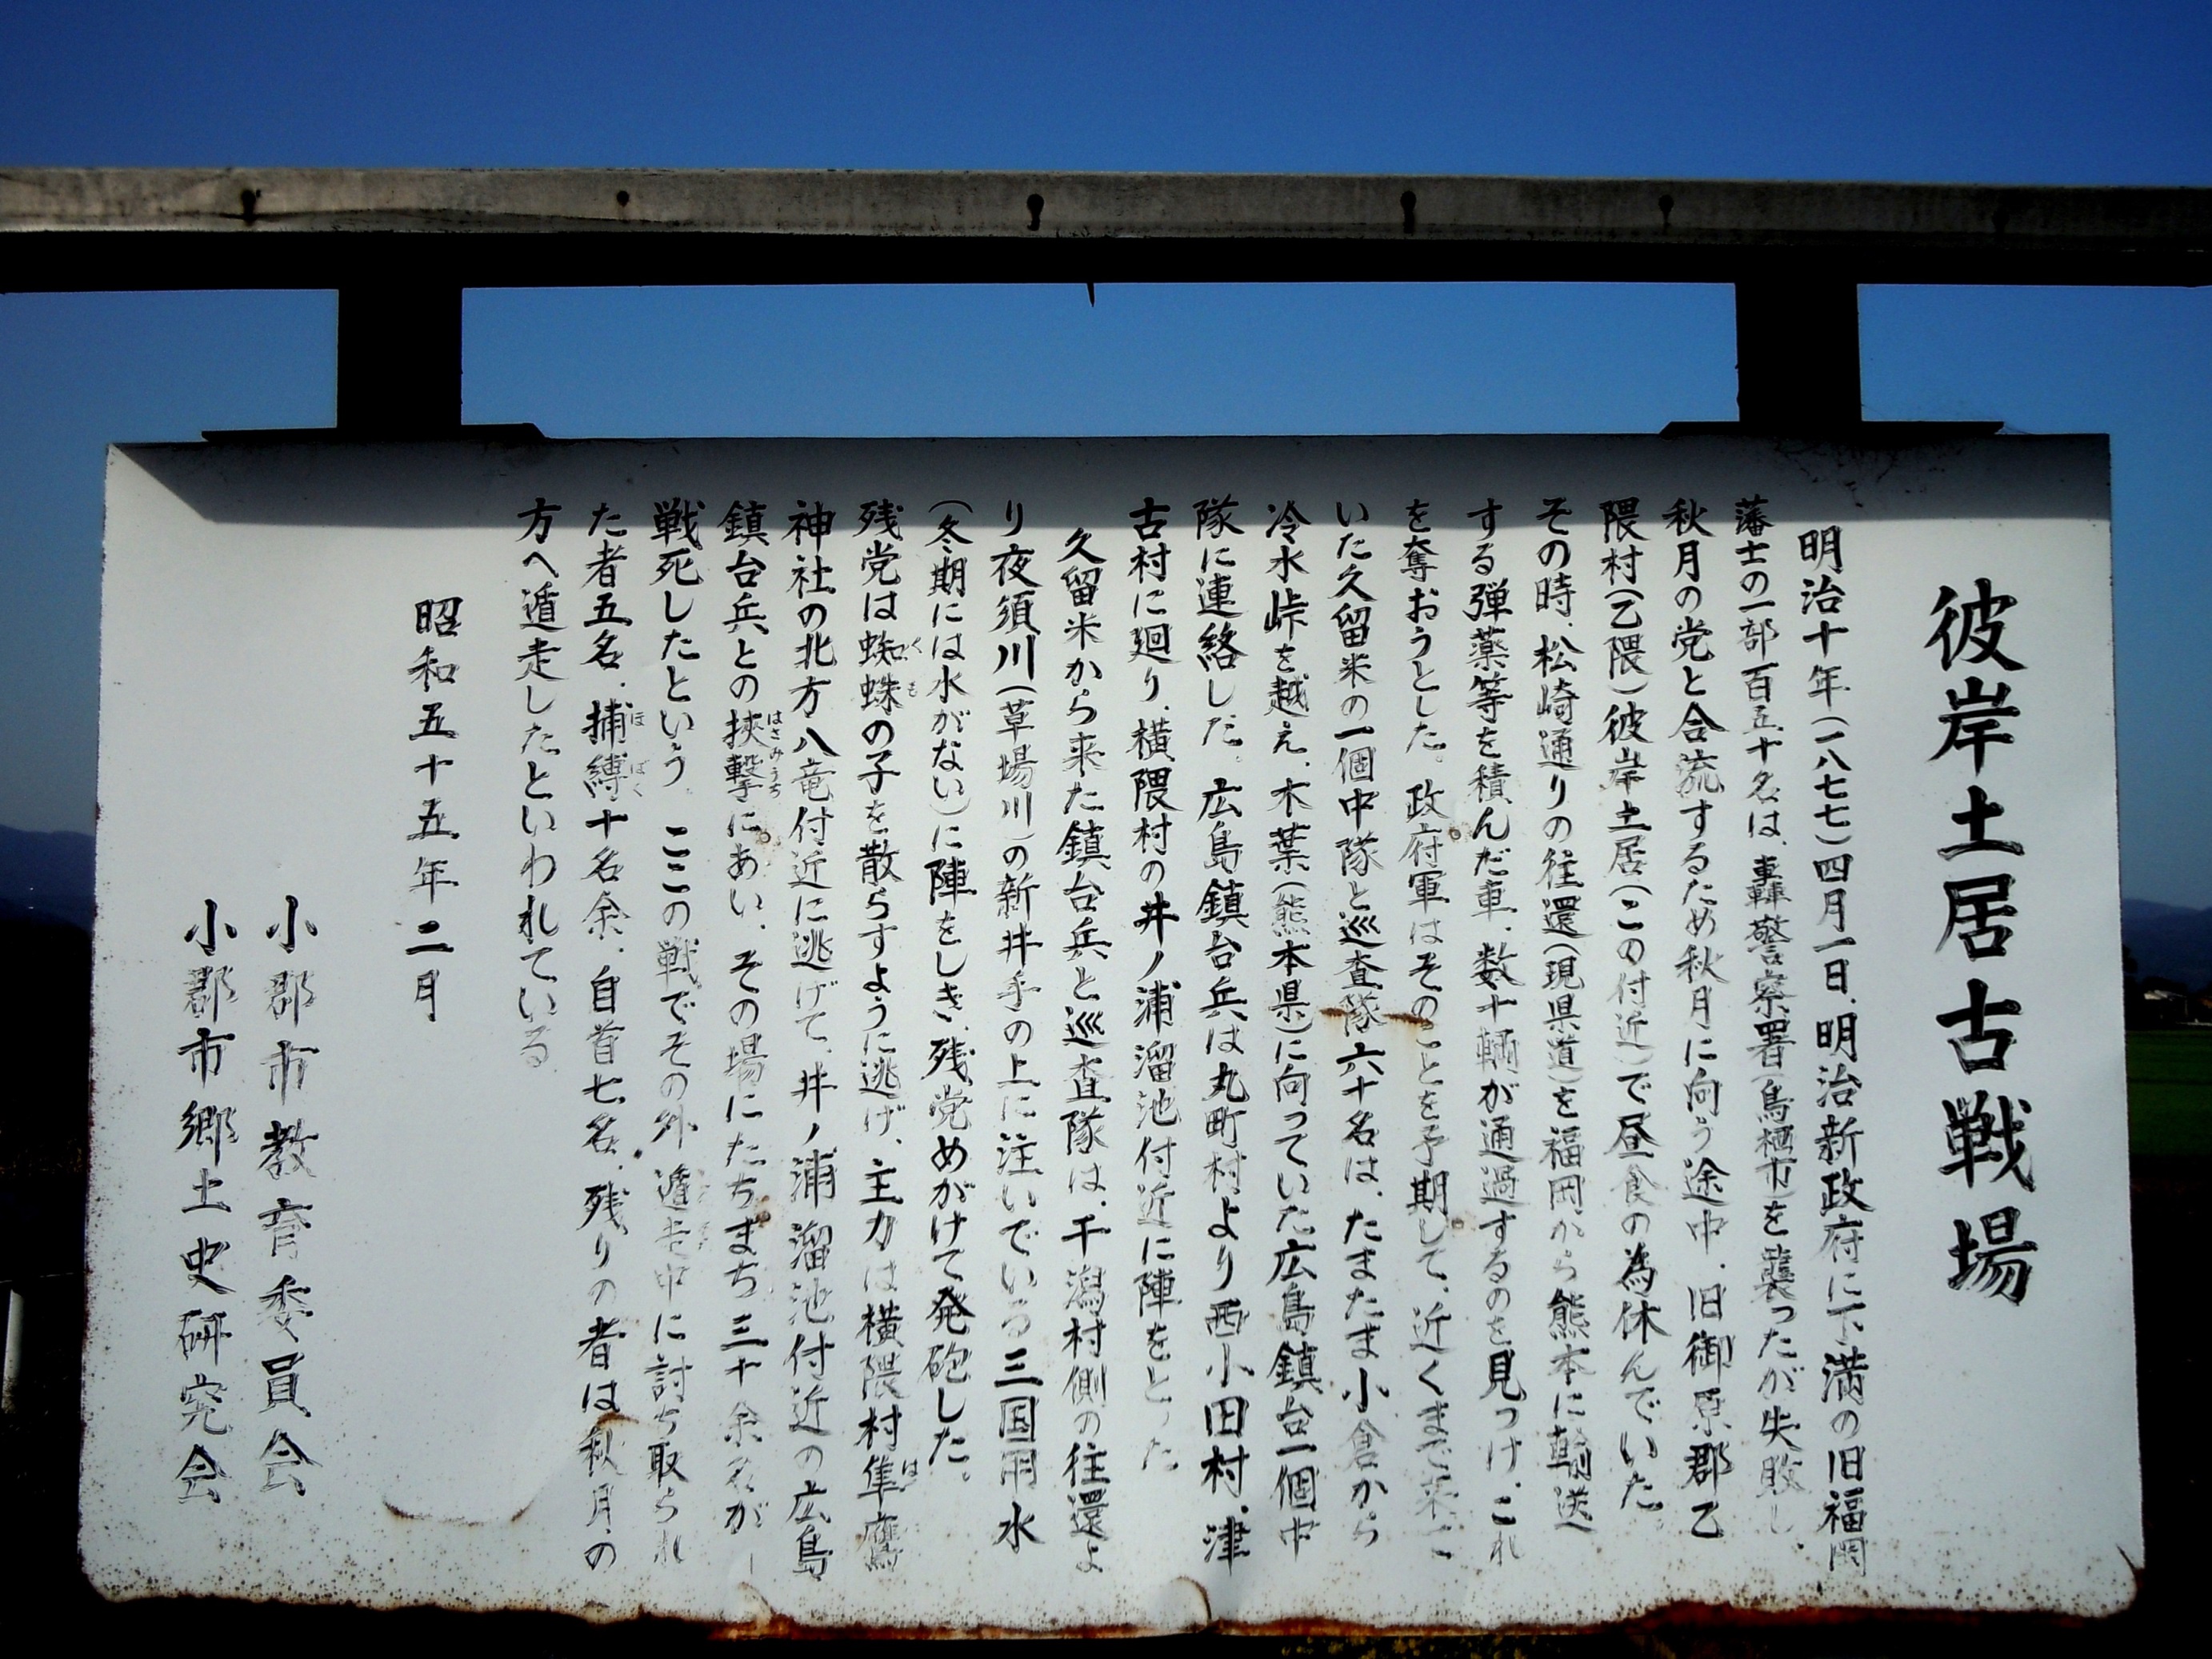 彼岸土居古戦場
明治十年(一八七七)四月一日、明治新政府に不満の旧福岡
藩士の一部百五十名は、轟警察署(鳥栖市)を襲ったが失敗し、
秋月の党と合流するため秋月に向う途中、旧御原郡乙
隈村(乙隈)彼岸土居(この付近)で昼食の為休んでいた。
その時、松崎通りの往還(現県道)を福岡から熊本に輸送
する弾薬等を積んだ車、数十輌が通過するのを見つけ、これ
を奪おうとした。政府軍はそのことを予期して、近くまで来て
いた久留米の一個中隊と巡査隊六十名は、たまたま小倉から
冷水峠を越え、木葉(熊本県)に向っていた広島鎮台一個中
隊に連絡した。広島鎮台兵は丸町村より西小田村、津
古村に廻り、横隈村の井ノ浦溜池付近に陣をとった
久留米から来た鎮台兵と巡査隊は、千潟村側の往還よ
り夜須川(草場川)の新井手の上に注いでいる三国用水
(冬期には水がない)に陣をしき、残党めがけて発砲した。
残党は蜘蛛の子を散らすように逃げ、主力は横隈村隼鷹
神社の北方八竜付近に逃げて、井ノ浦溜池付近の広島
鎮台兵との挟撃にあい、その場にたちまち三十余名が
戦死したという。ここの戦でその外遁走中に討ち取られ
た者五名、捕縛十名余、自首七名、残りの者は秋月の
方へ遁走したといわれている
昭和五十五年二月
小郡市教育委員会
小郡市郷土史研究会